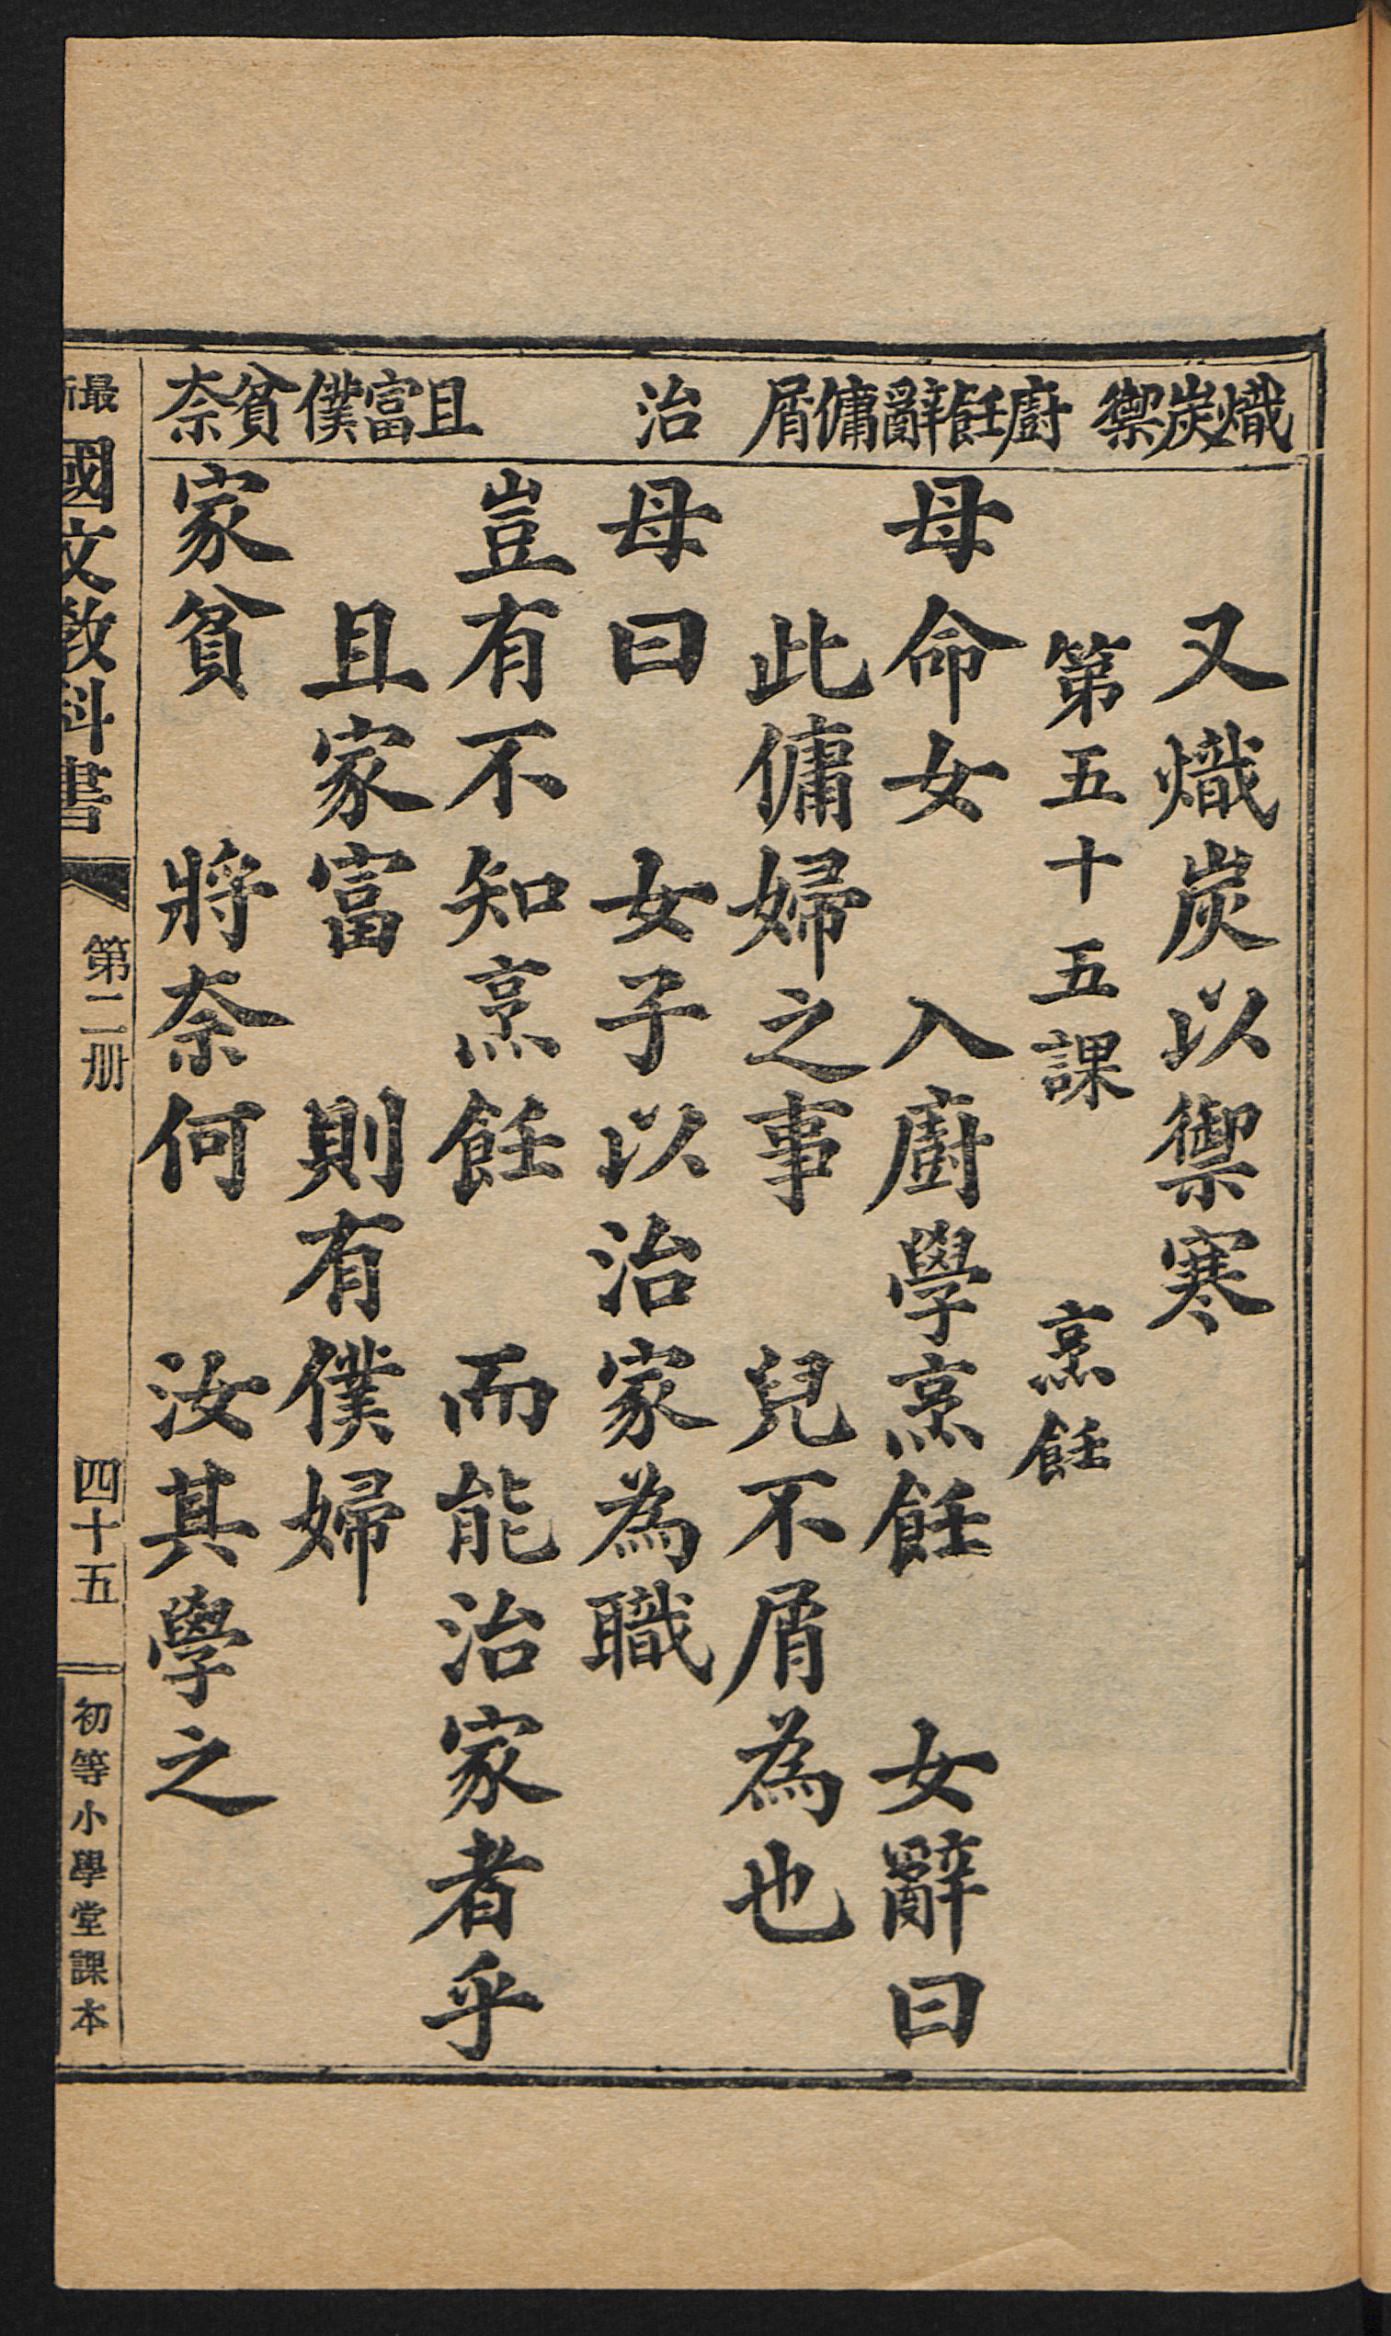 熾炭禦
廚飪辭傭屑
治
且富僕貧奈
又熾炭以禦寒
第五十五課 烹飪
母命女 入廚學烹飪 女辭曰
此傭婦之事 兒不屑為也
母曰 女子以治家為職
豈有不知烹飪 而能治家者乎
且家富 則有僕婦
家貧 將奈何 汝其學之
最新國文教科書 第二册 四十五 初等小學堂課本